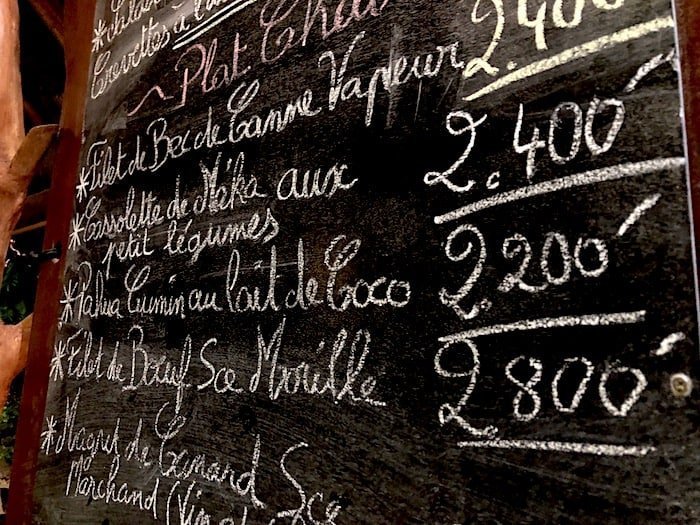 *Salade
Crevettes à l'
2.400
~Plat Chau
*Filet de Bec de Canne Vapeur
2.400
*Cassolette de Mêka aux
petit légumes
2.200
*Pahua Cumin au lait de Coco
2.800
*Filet de Bœuf Sce Morille
*Magret de Canard Sce
Marchand (Vin